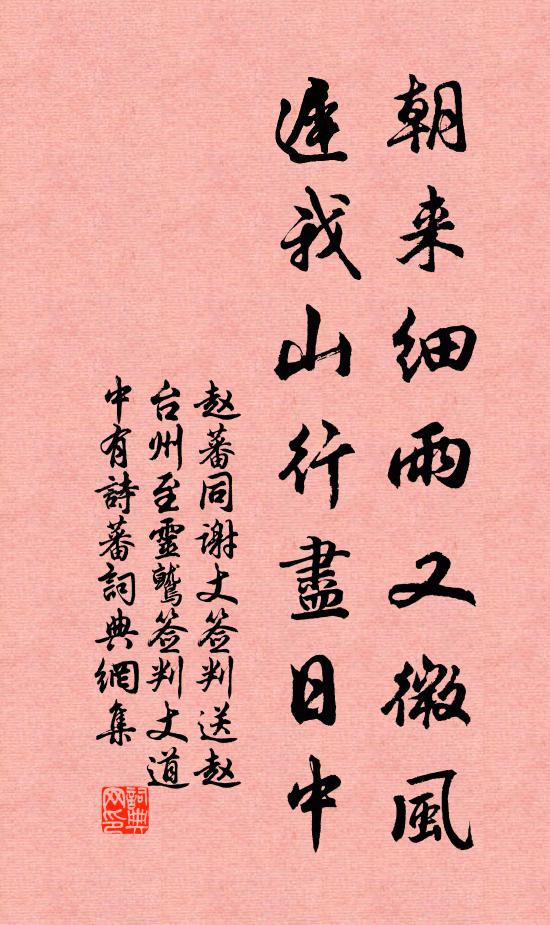 朝来细雨又微風
遲我山行盡日中
赵蕃同谢丈签判送赵
台州至靈鷲签判丈道
中有詩蕃詞典網集
詞典网印